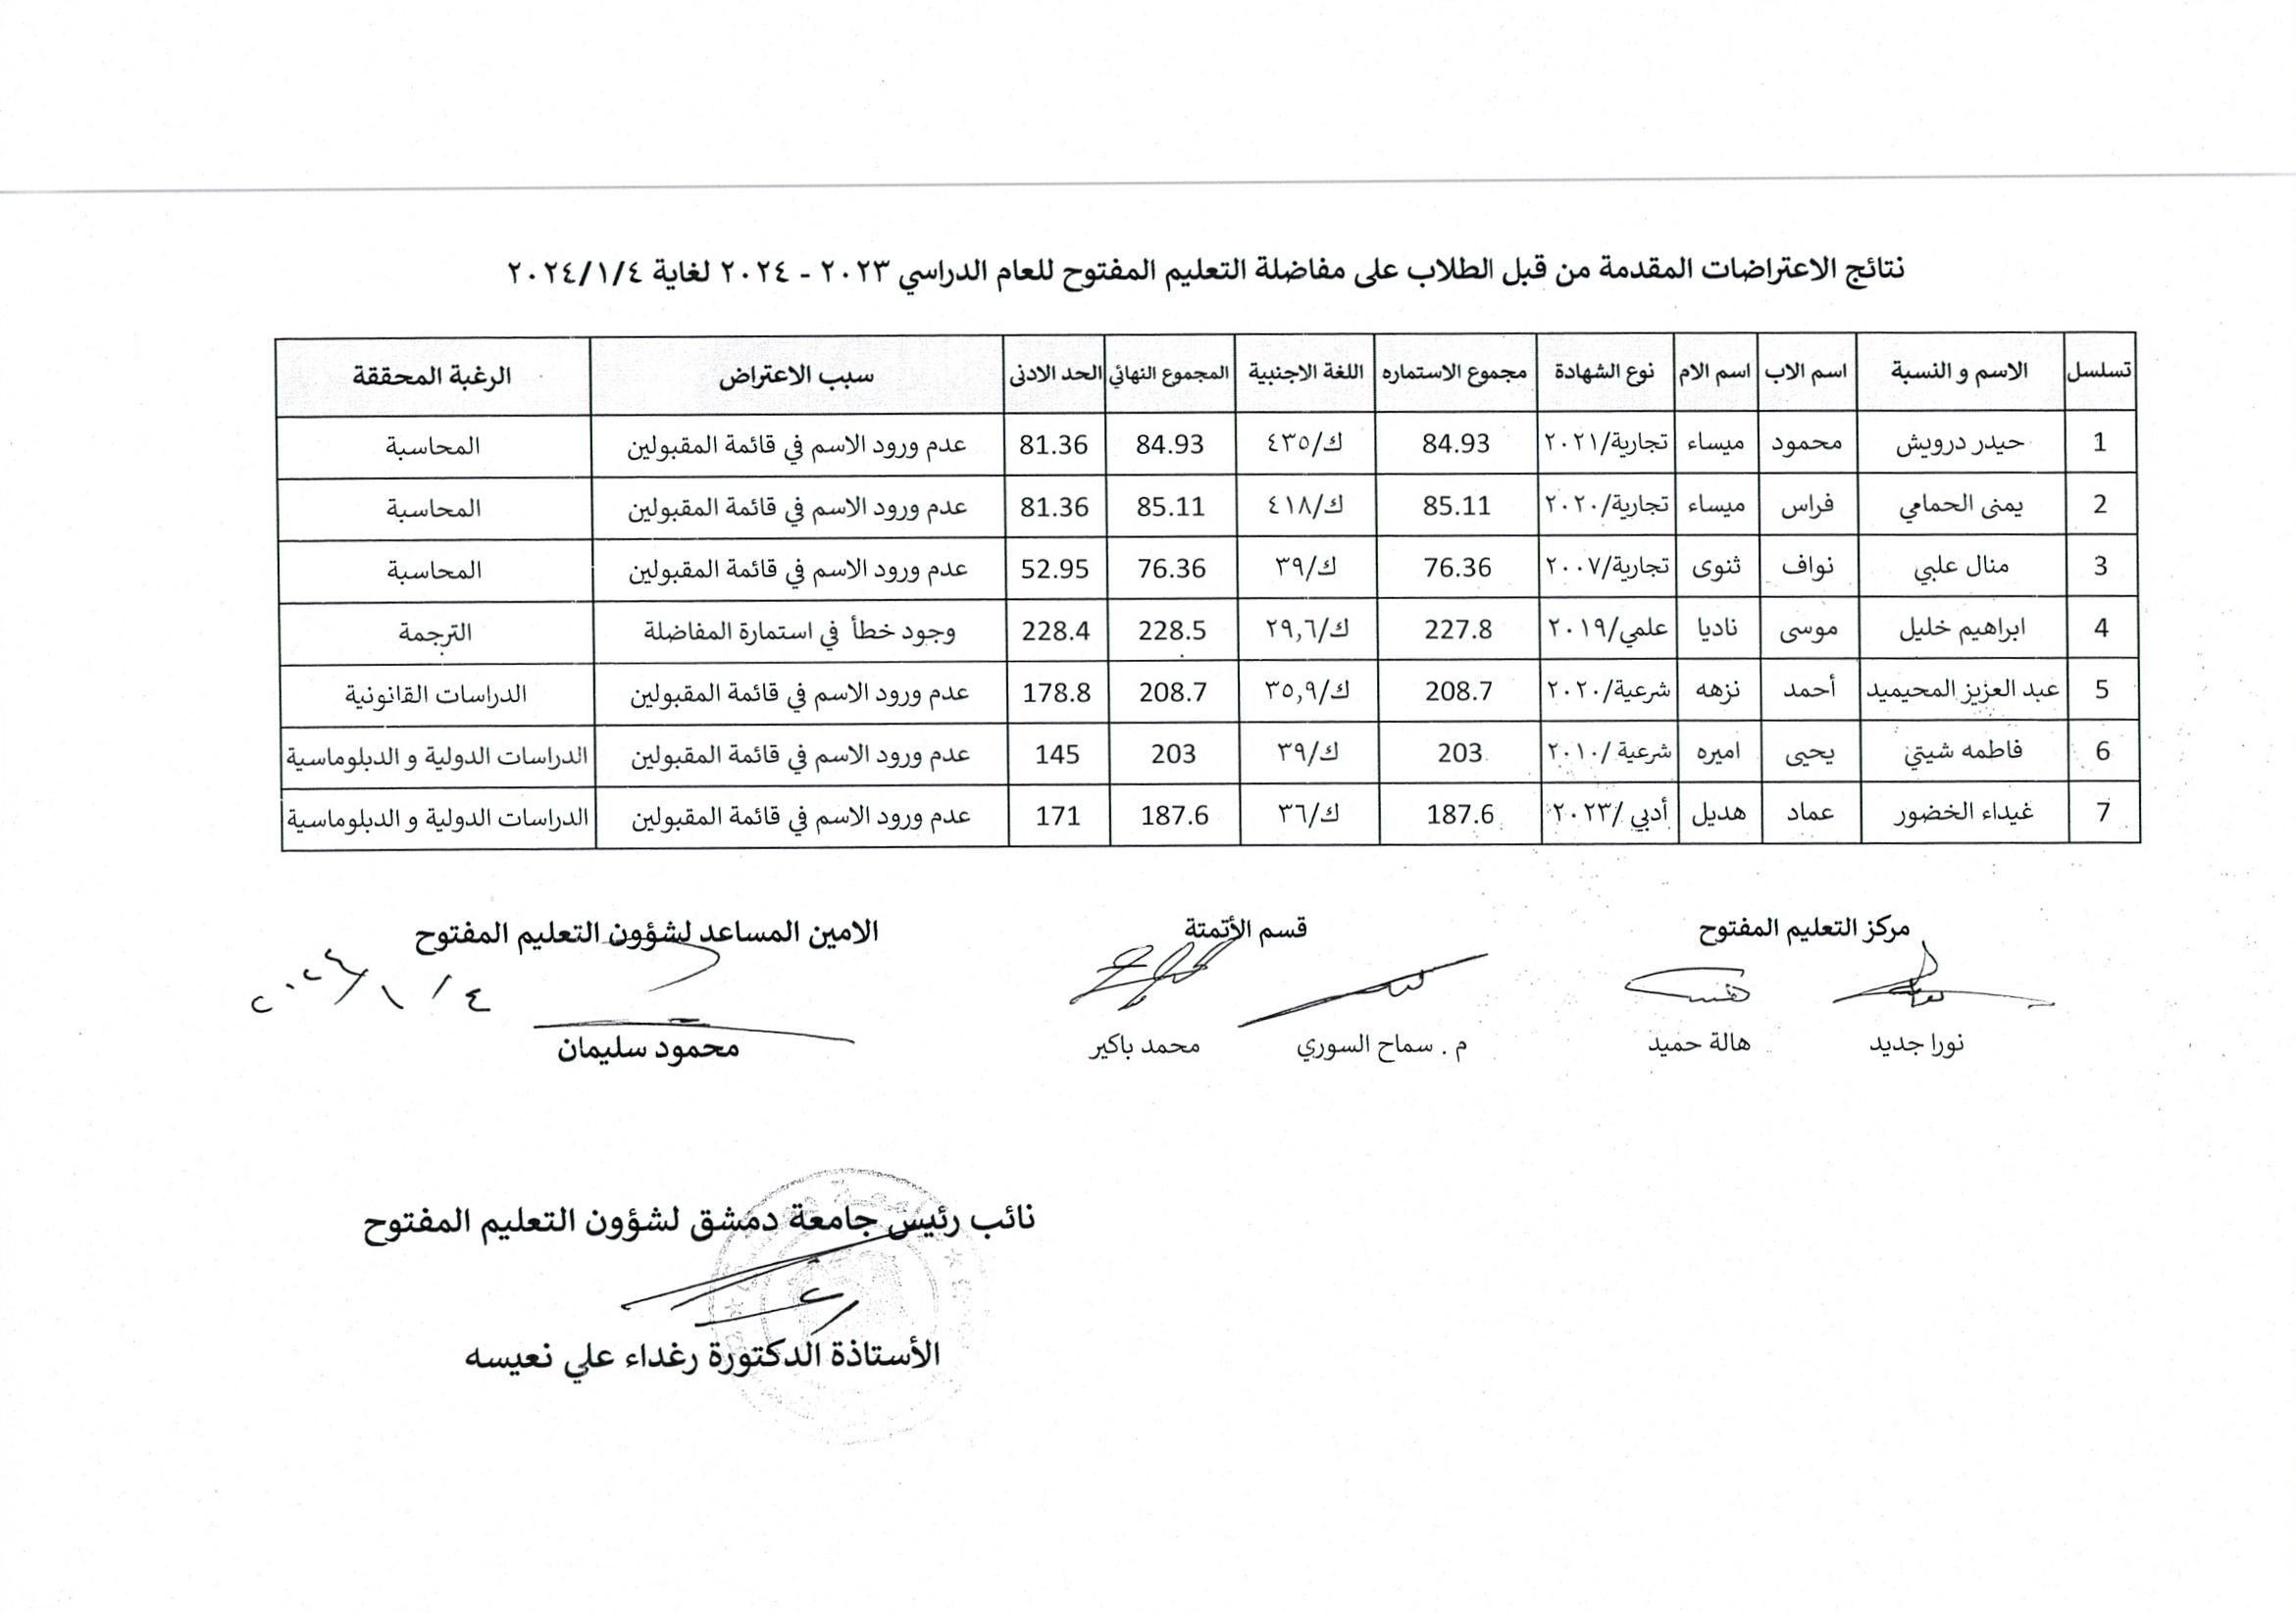 نتائج الاعتراضات المقدمة من قبل الطلاب على مفاضلة التعليم المفتوح للعام الدراسي ٢٠٢٣ - ٢٠٢٤ لغاية ٢٠٢٤/١/٤
تسلسل الاسم و النسبة اسم الاب اسم الام نوع الشهادة مجموع الاستماره اللغة الاجنبية المجموع النهائي الحد الادنى سبب الاعتراض الرغبة المحققة
1 حيدر درويش محمود ميساء تجارية/٢٠٢١ 84.93 ك/٤٣٥ 84.93 81.36 عدم ورود الاسم في قائمة المقبولين المحاسبة
2 يمنى الحمامي فراس ميساء تجارية/٢٠٢٠ 85.11 ك/٤١٨ 85.11 81.36 عدم ورود الاسم في قائمة المقبولين المحاسبة
3 منال علبي نواف ثنوى تجارية/٢٠٠٧ 76.36 ك/٣٩ 76.36 52.95 عدم ورود الاسم في قائمة المقبولين المحاسبة
4 ابراهيم خليل موسى ناديا علمي/٢٠١٩ 227.8 ك/٢٩,٦ 228.5 228.4 وجود خطأ في استمارة المفاضلة الترجمة
5 عبد العزيز المحيميد أحمد نزهه شرعية/٢٠٢٠ 208.7 ك/٣٥,٩ 208.7 178.8 عدم ورود الاسم في قائمة المقبولين الدراسات القانونية
6 فاطمه شيتي يحيى اميره شرعية /٢٠١٠ 203 ك/٣٩ 203 145 عدم ورود الاسم في قائمة المقبولين الدراسات الدولية و الدبلوماسية
7 غيداء الخضور عماد هديل أدبي /٢٠٢٣ 187.6 ك/٣٦ 187.6 171 عدم ورود الاسم في قائمة المقبولين الدراسات الدولية و الدبلوماسية
مركز التعليم المفتوح قسم الأتمتة الامين المساعد لشؤون التعليم المفتوح
٢٠٢٤/١/٤
نورا جديد هالة حميد م . سماح السوري محمد باكير محمود سليمان
نائب رئيس جامعة دمشق لشؤون التعليم المفتوح
الأستاذة الدكتورة رغداء علي نعيسه